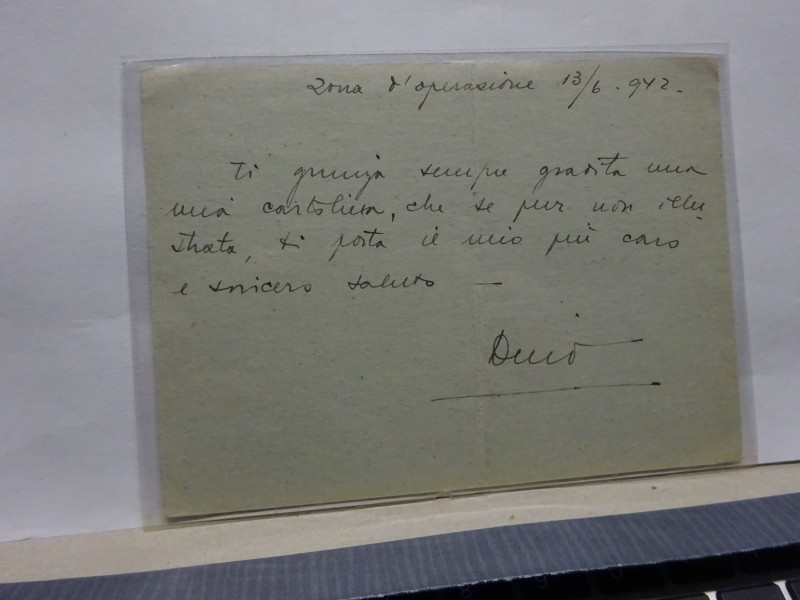 Zona d'operazione 13/6.942.
Ti giunga sempre gradita una
mia cartolina, che se pur non illu-
strata, ti porta il mio più caro
e sincero saluto —